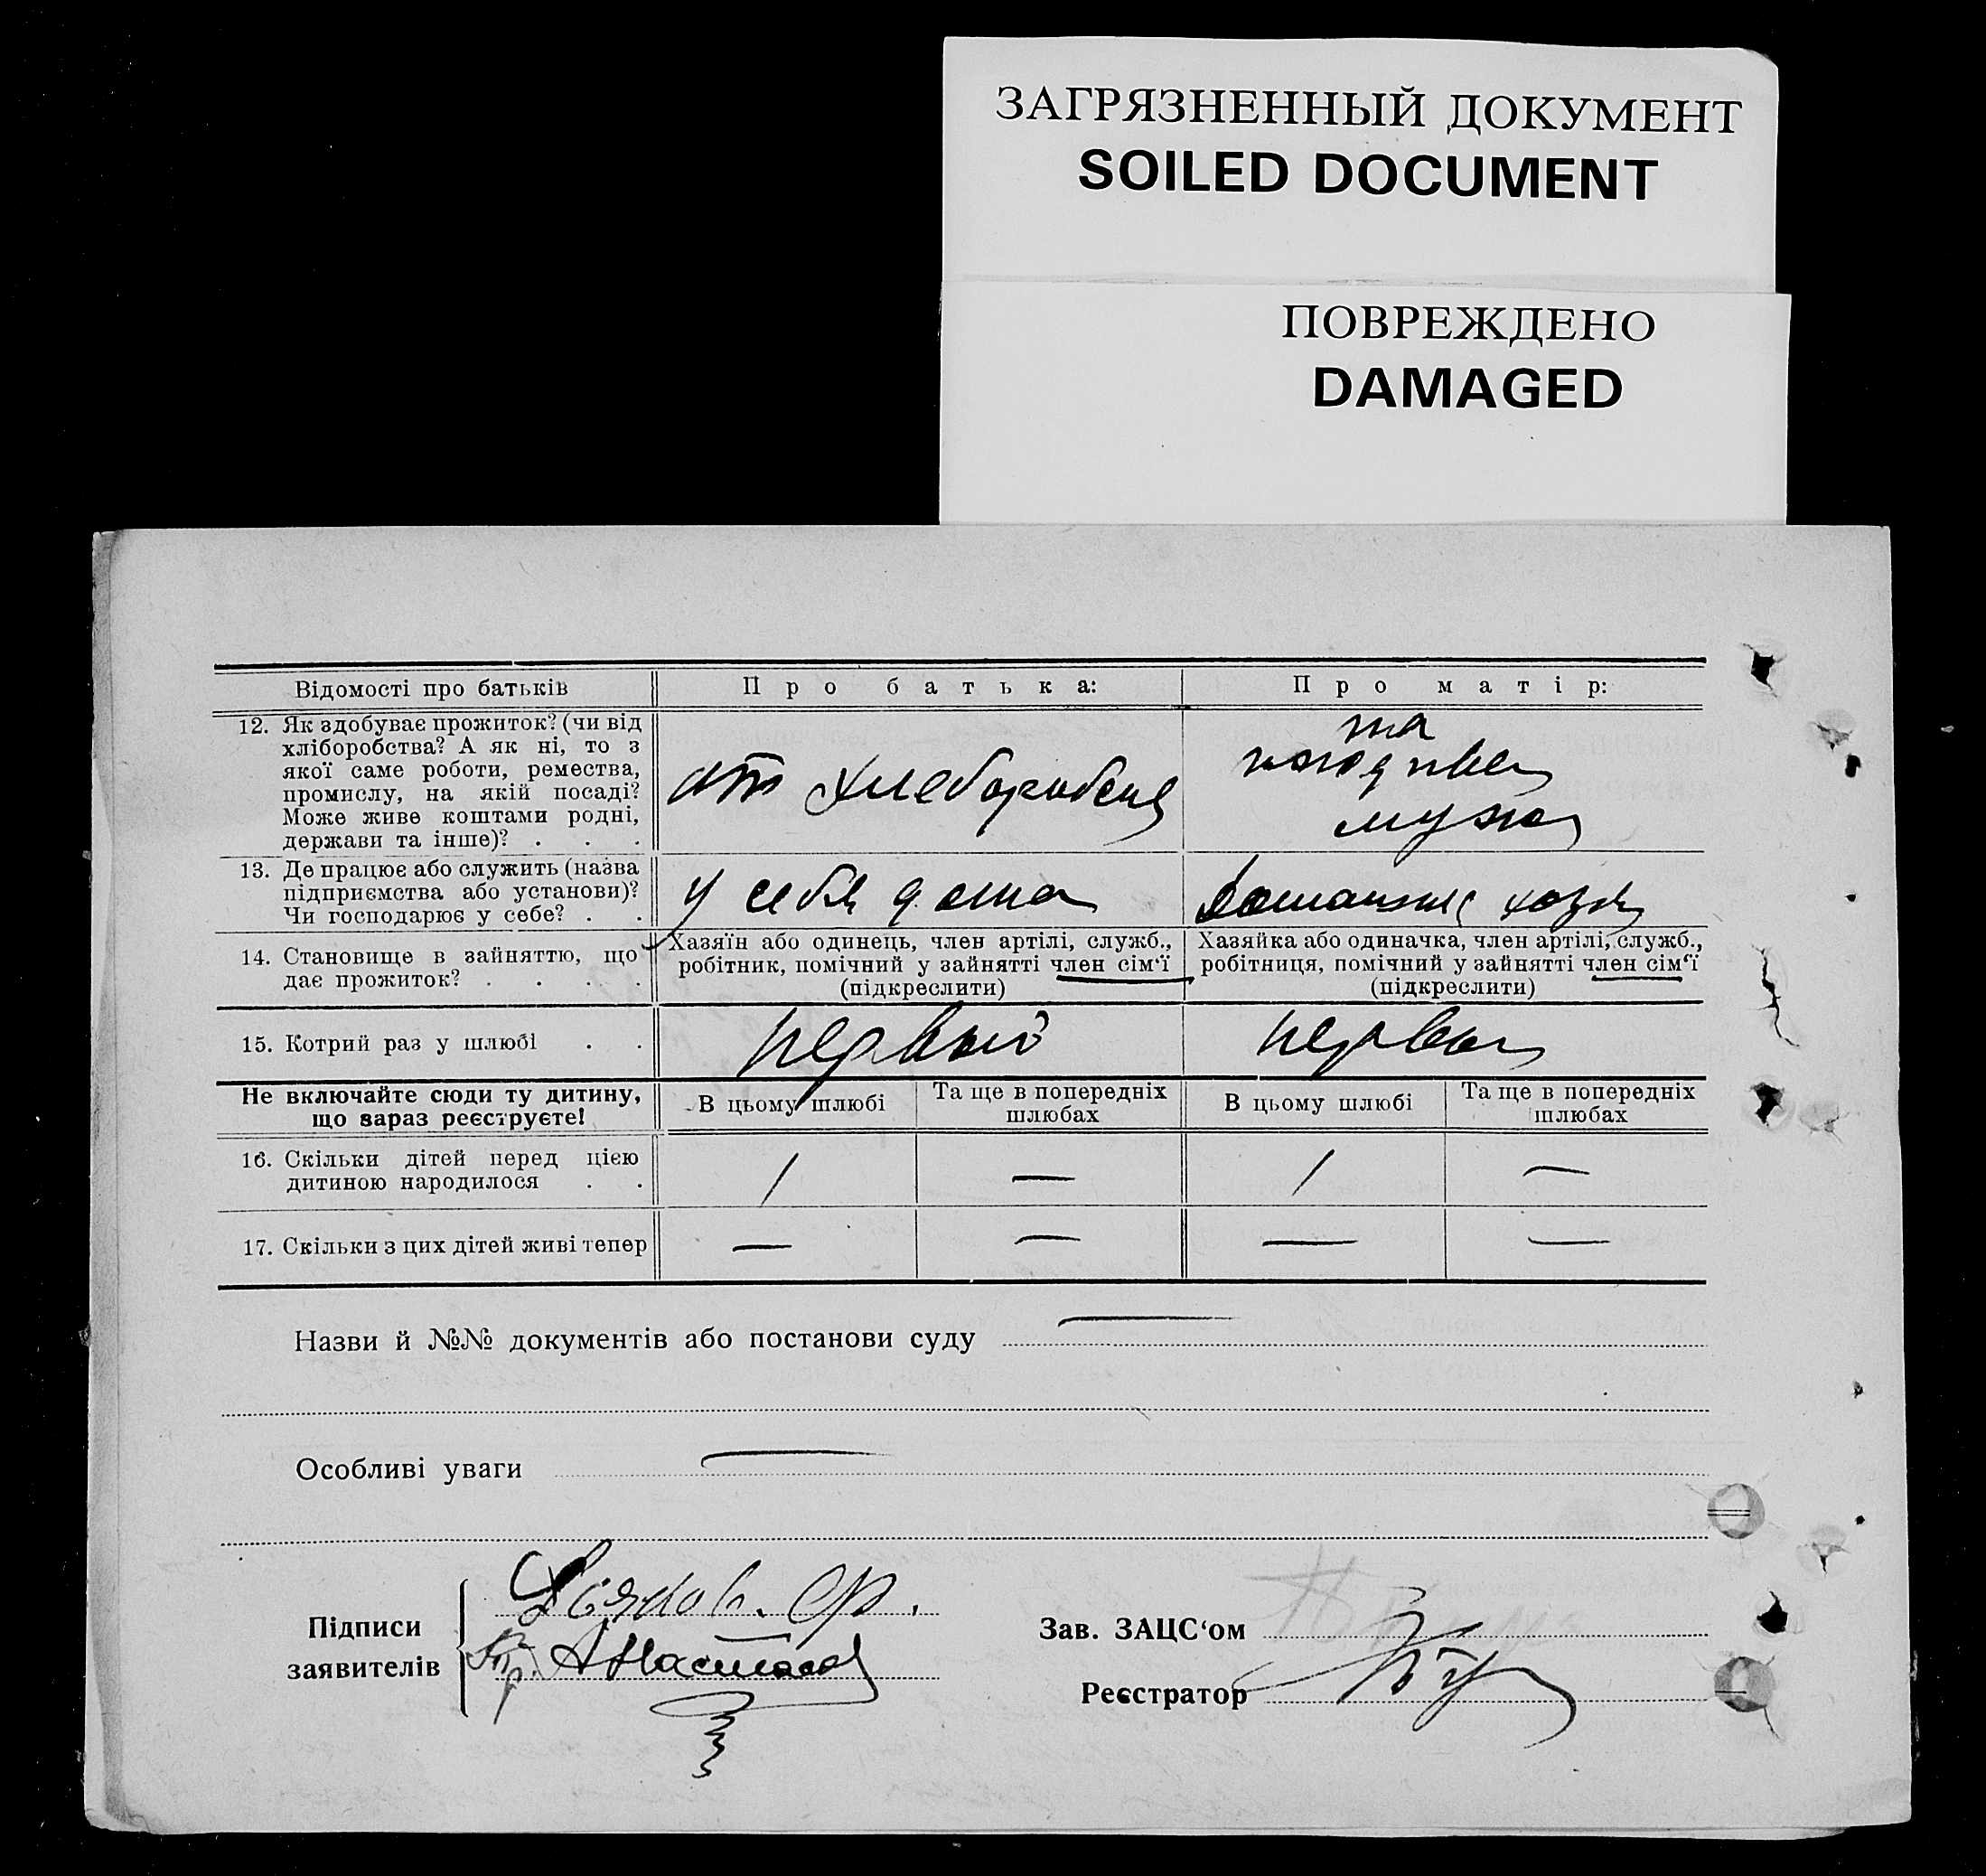 ЗАГРЯЗНЕННЫЙ ДОКУМЕНТ
SOILED DOCUMENT
ПОВРЕЖДЕНО
DAMAGED
Відомості про батьків
Про батька:
Про матір:
12. Як здобуває прожиток? (чи від
хліборобства? А як ні, то з
якої саме роботи, ремества,
промислу, на якій посаді?
Може живе коштами родні,
держави та інше)? . . .
от
мужа
13. Де працює або служить (назва
підприємства або установи)?
Чи господарює у себе? . .
у себя дома
14. Становище в зайняттю, що
дає прожиток? . . . .
Хазяїн або одинець, член артілі, служб.,
робітник, помічний у зайнятті член сім'ї
(підкреслити)
Хазяйка або одиначка, член артілі, служб.,
робітниця, помічний у зайнятті член сім'ї
(підкреслити)
15. Котрий раз у шлюбі . .
первый
первый
Не включайте сюди ту дитину,
що зараз реєструєте!
В цьому шлюбі
Та ще в попередніх
шлюбах
В цьому шлюбі
Та ще в попередніх
шлюбах
16. Скільки дітей перед цією
дитиною народилося . .
1 — 1 —
17. Скільки з цих дітей живі тепер
— — — —
Назви й №№ документів або постанови суду —
Особливі уваги —
Підписи
заявителів
Зав. ЗАЦС'ом
Реєстратор